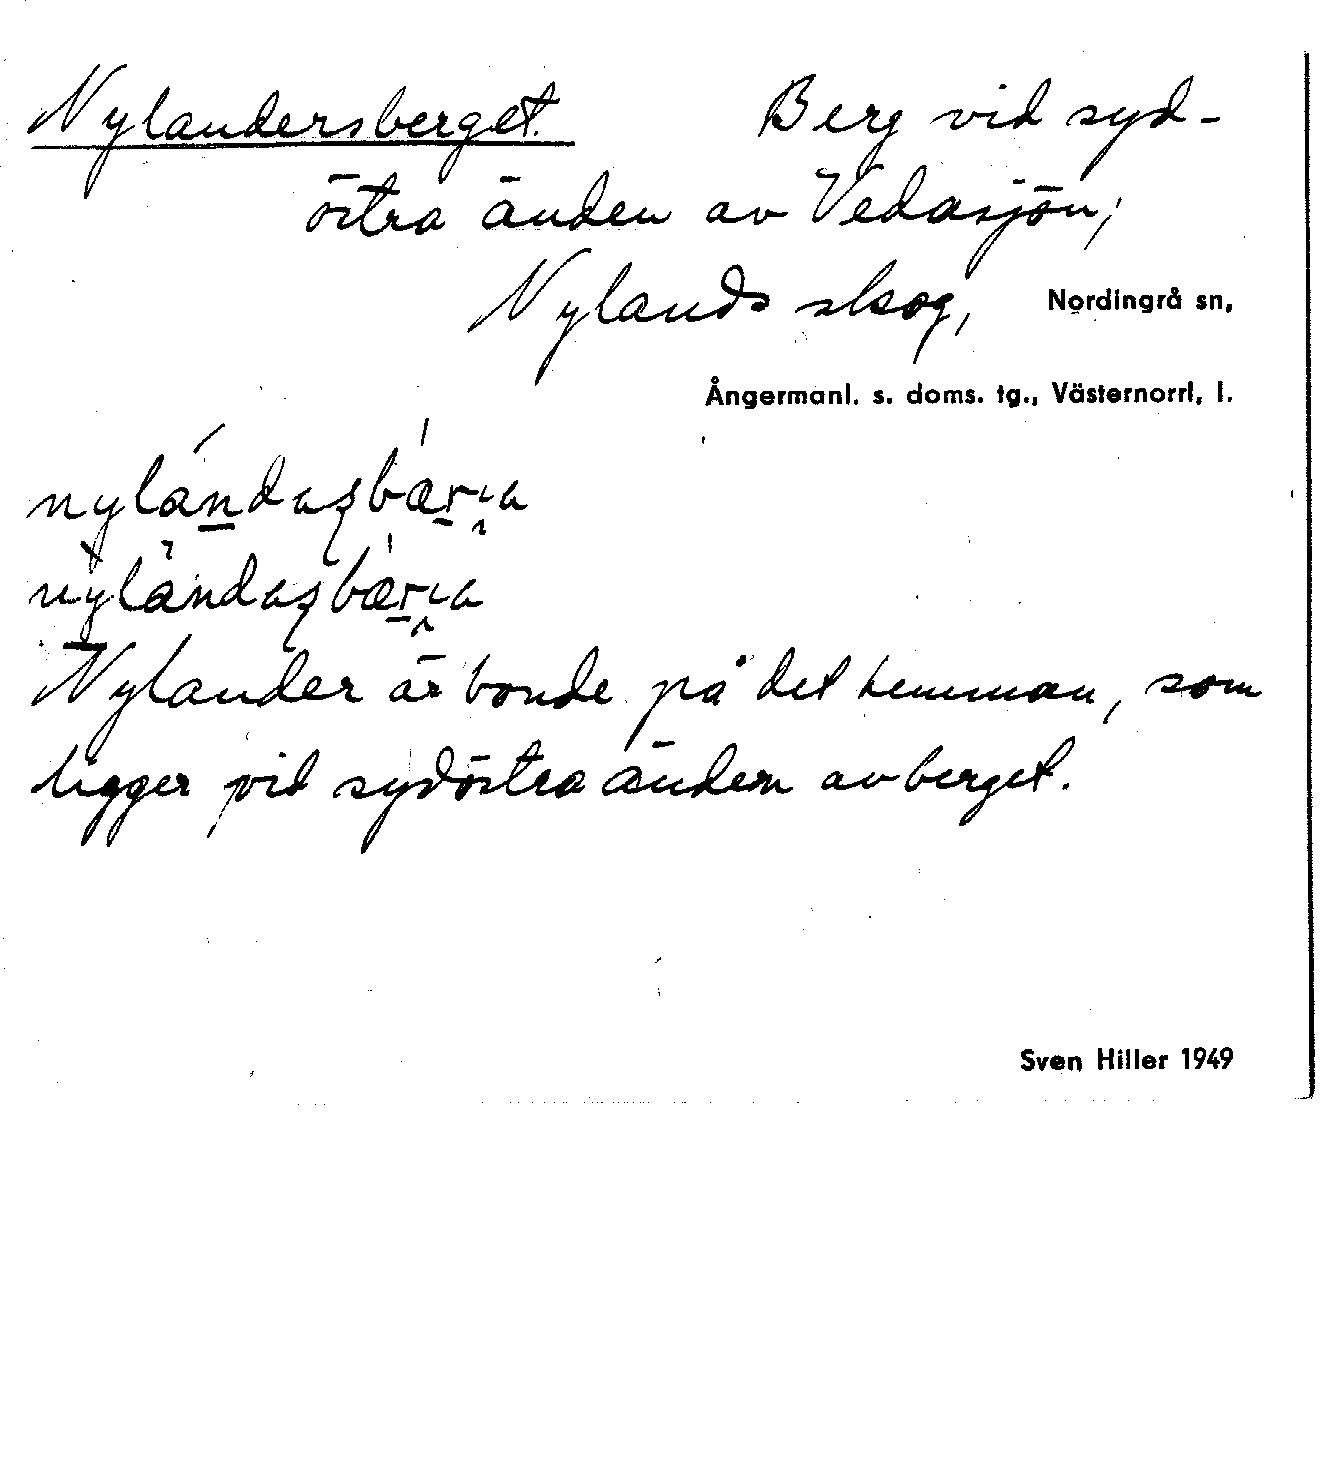 Nylandersberget. Berg vid syd-
östra änden av Vedasjön,
Nylands skog, Nordingrå sn,
Ångermanl. s. doms. tg., Västernorrl. l.
Nylander är bonde på det hemman, som
ligger vid sydöstra änden av berget.
Sven Hiller 1949